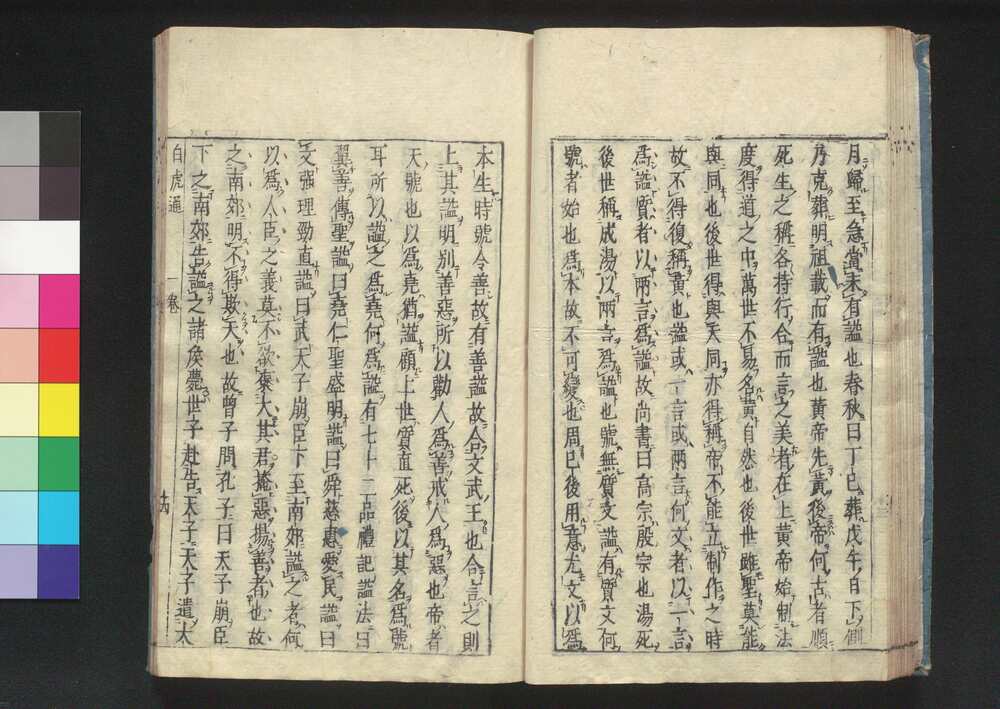 月歸至急當未有謚也春秋曰丁巳葬戊午日下側
乃克葬明祖載而有謚也黃帝先黃後帝何古者順
死生之稱各持行合而言之美者在上黃帝始制法
度得道之中萬世不易名黃自然也後世雖聖莫能
與同也後世得與天同亦得稱帝不能立制作之時
故不得復稱黃也謚或一言或兩言何文者以一言
爲謚質者以兩言爲謚故尚書曰高宗殷宗也湯死
後世稱成湯以兩言爲謚也號無質文謚有質文何
號者始也爲本故不可變也周已後用意尤文以爲
本生時號令善故有善謚故合文武王也合言之則
上其謚明別善惡所以勸人爲善戒人爲惡也帝者
天號也以爲堯猶謚顧上世質直死後以其名爲號
耳所以謚之爲堯何爲謚有七十二品禮記謚法曰
翼善傳聖謚曰堯仁聖盛明謚曰舜慈惠愛民謚曰
文强理勁直謚曰武天子崩臣下至南郊謚之者何
以爲人臣之義莫不欲褒大其君掩惡揚善者也故
之南郊明不得欺天也故曾子問孔子曰天子崩臣
下之南郊告謚之諸侯薨世子赴告天子天子遣大
白虎通
一卷
十四